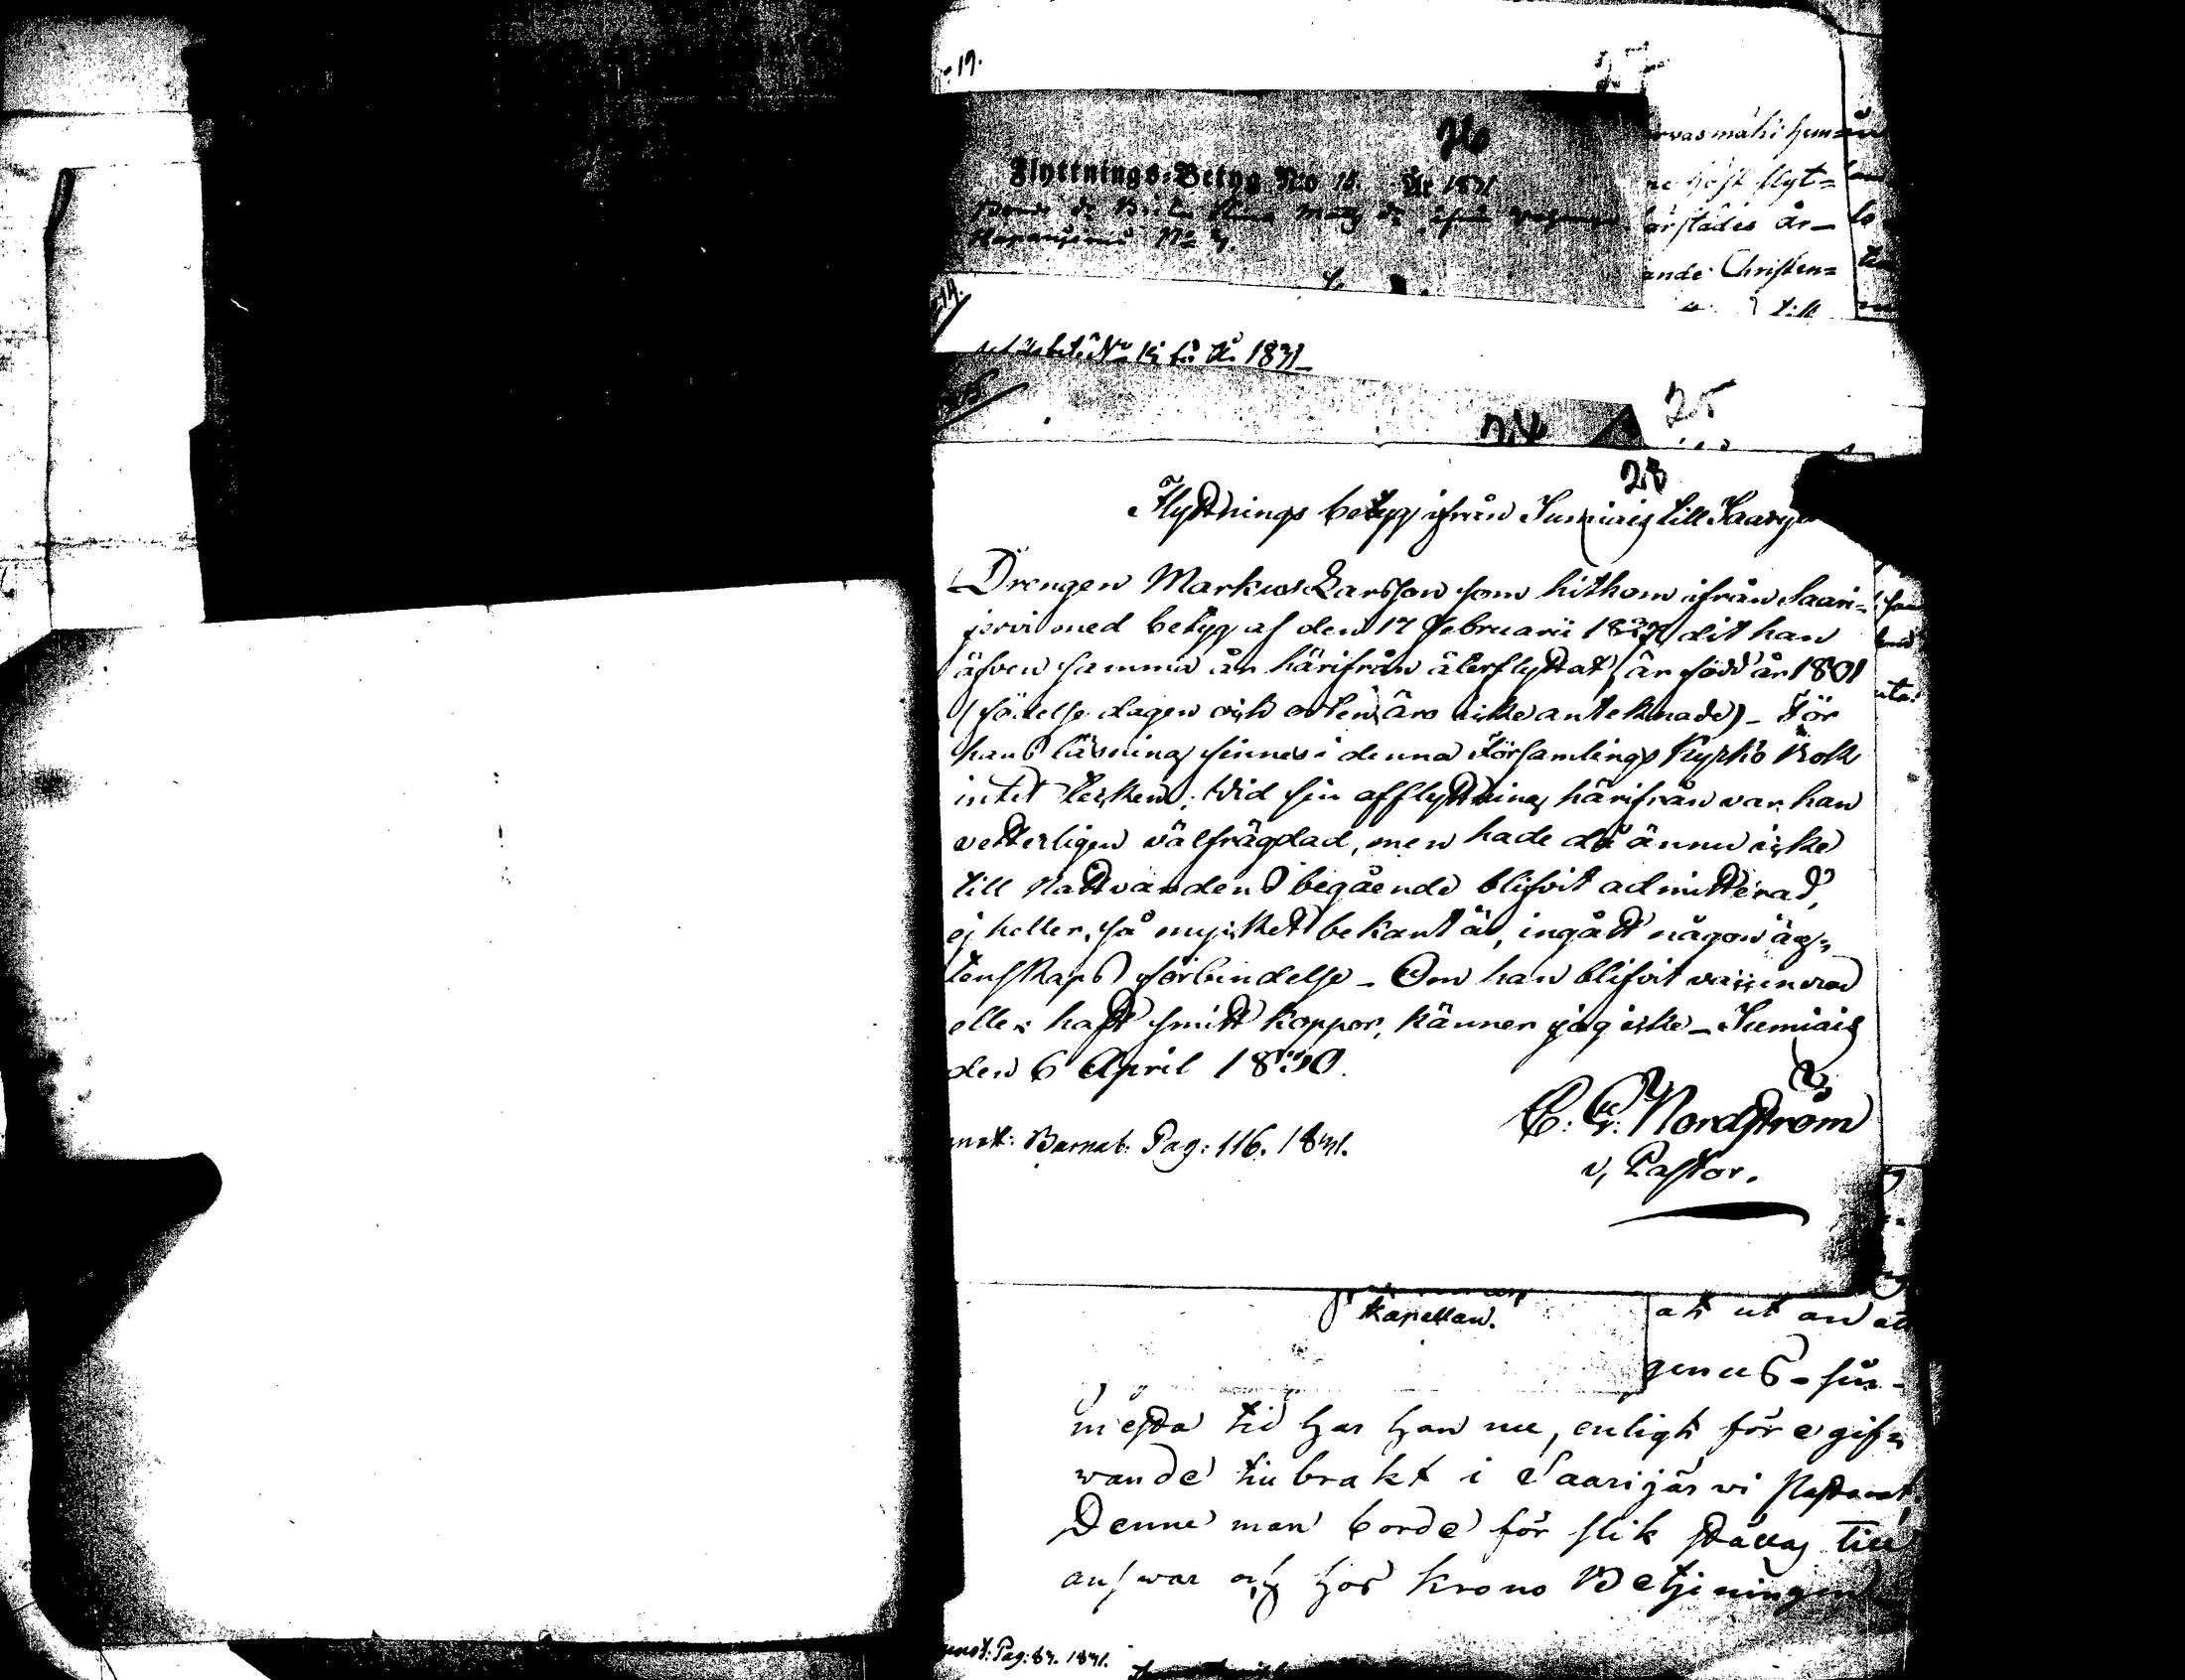 -19.
27
26
Flyttnings-Betyg No 18. År 1831
No 7.
ärstädes är-
ande Christen=
till
14.
No 15 för År 1831
25
24
28
Flyttnings betyg ifrån Jumiais till Saarij
Drengen Markus Larsson som hitkom ifrån Saari=
jervi med betyg af den 17 Februarii 1827 dit han
äfven samma år härifrån återflyttat, är född år 1801
(födelse dagen och orten äro icke anteknade) - För
hans läsning finnes i denna Församlings Kyrko Bok
intet tecken; Wid sin afflyttning härifrån var han
vetterligen välfrägdad, men hade då ännu icke
till Nattvardens begående blifvit admitterad,
ej heller, så mycket bekant är, ingått någon äg=
tenskaps förbindelse - Om han blifvit vaccinerad
eller haft smitt koppor, känner jag icke - Jumiais
den 6 April 1830.
C. G. Nordström
v, Pastor.
Barnab. Pag: 116. 1831.
Kapellan.
at ut an
mesta tid har han nu, enligt före gif=
wande tillbrakt i Saarijärvi Pastorat,
Denne man borde för slik ställas till
answar och hos Krono Betjeningen
Pag: 87. 1831.